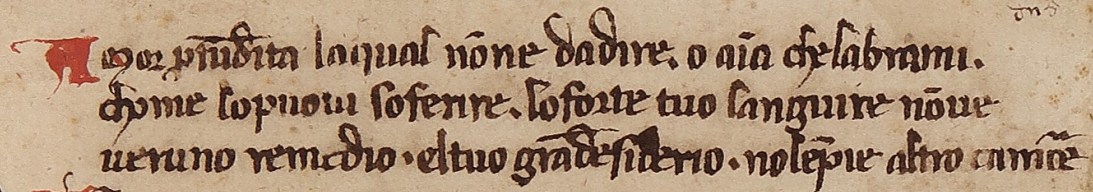 Amor pfūdita laqual nōne dadire. o aīa chelabrami.
chome lopuoui soferire. loforte tuo languire nōne
ueruno remedio · eltuo grādesiderio · nolēpie altro